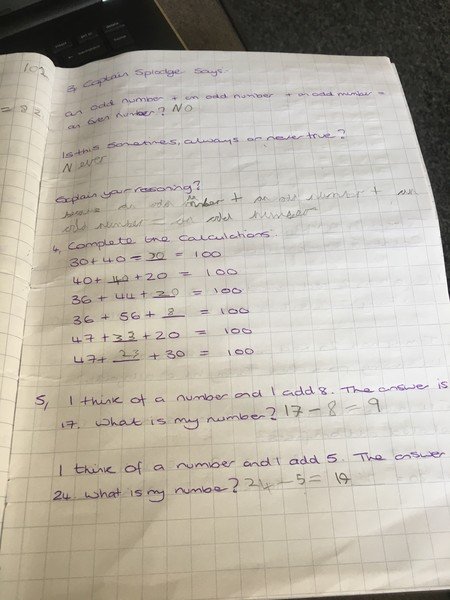 102
= 82
3, Captain Splodge says:-
an odd number + an odd number + an odd number =
an even number? NO
Is this sometimes, always or never true?
Never
Explain your reasoning?
because an odd number + an odd number + an
odd number = an odd number
4, Complete the calculations.
30 + 40 = 30 = 100
40 + 40 + 20 = 100
36 + 44 + 20 = 100
36 + 56 + 8 = 100
47 + 33 + 20 = 100
47 + 23 + 30 = 100
5, I think of a number and I add 8. The answer is
17. What is my number? 17 - 8 = 9
I think of a number and I add 5. The answer
24. What is my number? 24 - 5 = 19